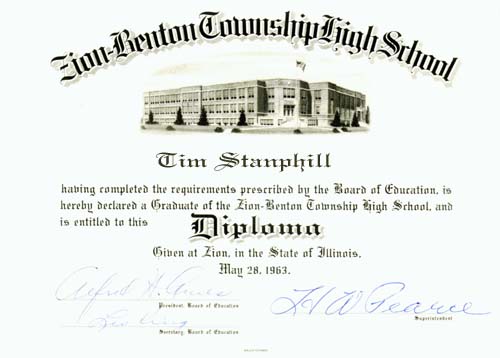 Zion-Benton Township High School
Tim Stanphill
having completed the requirements prescribed by the Board of Education, is
hereby declared a Graduate of the Zion-Benton Township High School, and
is entitled to this Diploma
Given at Zion, in the State of Illinois,
May 28, 1963.
Alfred H.
President, Board of Education
H W Pearce
Superintendent
Secretary, Board of Education